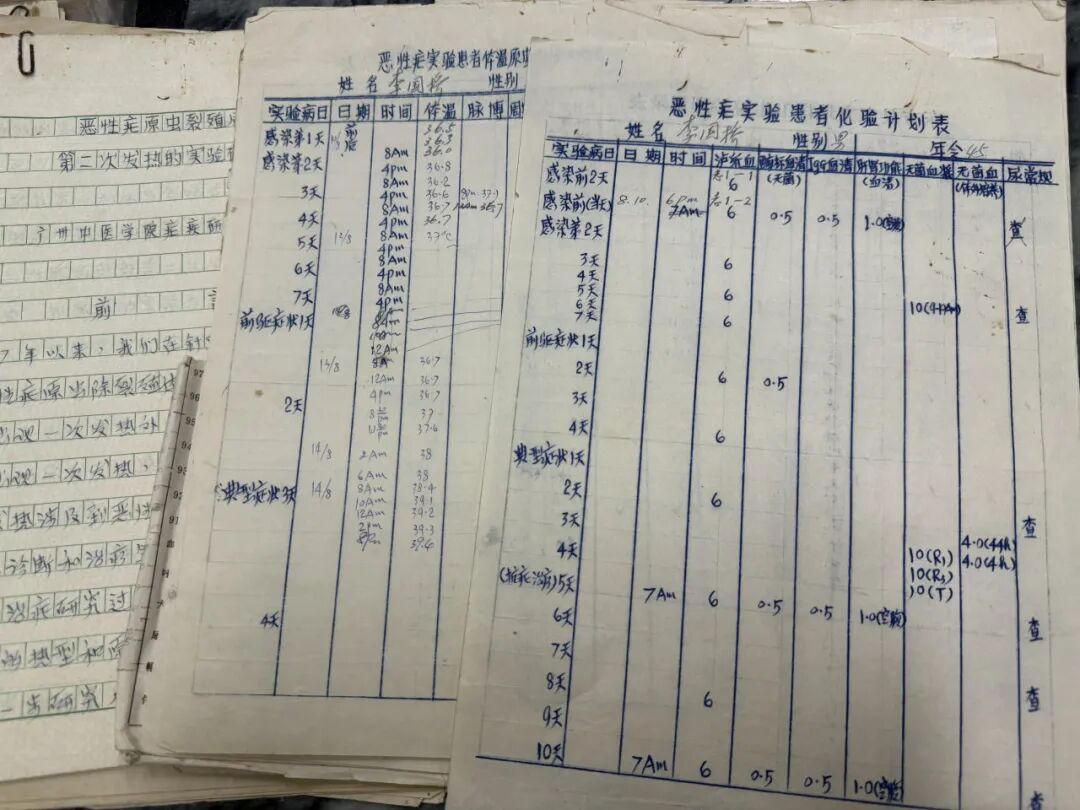 恶性疟原虫裂殖
第二次发热的实验研
广州中医学院疟疾研
前 言
7年以来，我们在针
性疟原虫除裂殖
一次发热外
一次发热，
热涉及到恶性
诊断和治疗
治症研究过
的热型和
一步研究
97
96
95
94
93
92
91
恶性疟实验患者体温原虫
姓名 李国桥 性别
实验病日 日期 时间 体温 脉搏
感染第1天 36.5
36.3
8Am 36.0
感染第2天 4pm 36.8
8Am 36.2
3天 4pm 36.6 8pm 37.1
8Am 36.7 12am 36.7
4天 4pm 36.7
5天 12/8 8Am 37℃
4pm
6天 8Am
4pm
7天 8Am
4pm
前驱症状1天
12Am
13/8 8A 36.7
12Am 36.7
4pm 36.7
2天 8 37
37.6
14/8 2Am 38
6Am 38
典型症状3天 14/8 8Am 38.4
10Am 39.1
12Am 39.2
2pm 39.3
4天
恶性疟实验患者化验计划表
姓名 李国桥 性别 男 年令 45
实验病日 日期 时间 疟原血 IgG血清 肝肾功能 无菌血浆 无菌血 尿常规
(无菌) (血清) (体外培养)
感染前2天 6
感染前(当天) 8.10. 6pm 7Am 6 0.5 0.5 1.0(空腹) 查
感染第2天
3天 6
4天
5天 6
6天 查
7天 6
前驱症状1天
2天 6 0.5
3天
4天 6
典型症状1天
2天 6
3天 查
4天 10(R₁) 4.0(44h)
10(R₃) 4.0(44h)
(抗疟治疗)5天 7Am 6 0.5 0.5 1.0(空腹) 10(T)
6天 查
7天
8天 6 查
9天
10天 7Am 6 0.5 0.5 1.0(空腹) 查